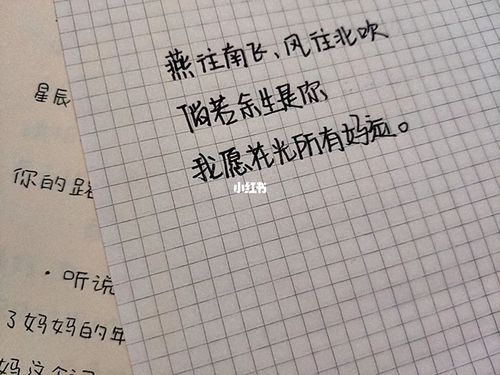 燕往南飞、风往北吹
倘若余生是你
我愿花光所有
小红书
星辰
你的路
·听说
了妈妈的年
妈这个